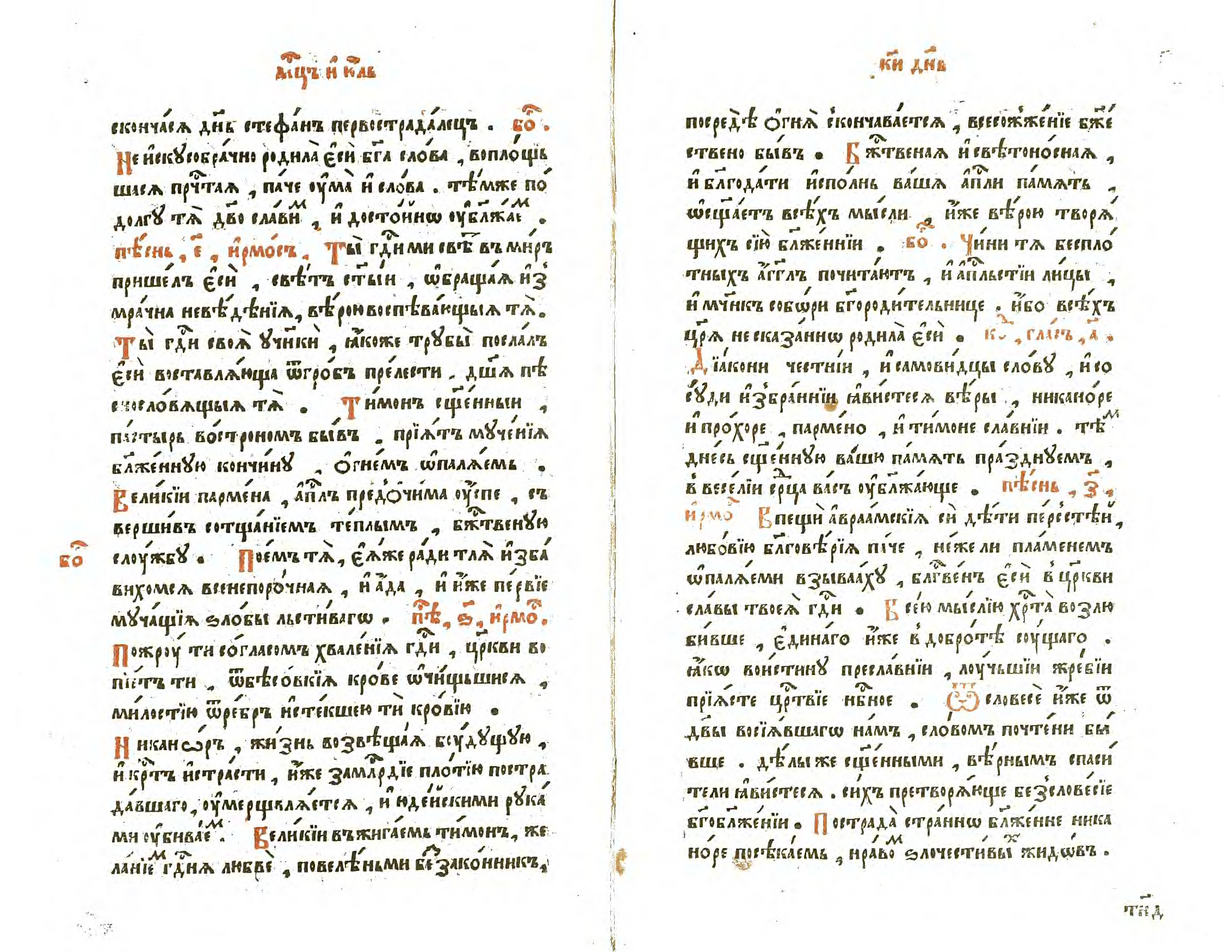 мⷭ҇цъ и҆ ю҆́лѧ
скончѧ́сѧ дн҃ь стефа́нъ первострада́лецъ . бо҃ .
Не и҆скꙋсобра́чно родила̀ є҆сѝ бг҃а сло́ва , вопло́щь
шасѧ прⷱ҇таѧ , па́че ᲂу҆ма̀ и҆ сло́ва . тѣ́мже по
долгꙋ тѧ̀ дв҃о сла́виⷨ , и҆ досто́йнѡ ᲂу҆бл҃жа́еⷨ .
пѣ́снь , є҃ , і҆рмо́съ , Ты̀ гдⷭ҇и ми свѣ́ въ ми́ръ
прише́лъ є҆сѝ , свѣ́тъ ст҃ы́и , ѡ҆браща́ѧ и҆з̾
мра́чна невѣ́дѣнїѧ , вѣ́рою воспѣва́ющыѧ тѧ̀ .
Ты̀ гдⷭ҇и своѧ̀ ᲂу҆ч҃никѝ , ꙗ҆́коже трꙋбы̀ посла́лъ
є҆сѝ воставлѧ́юща ѿ гро́бъ пре́лести . дш҃а пѣ
снословѧщыѧ тѧ̀ . Ти́монъ сщ҃е́нныи ,
па́стырь во́строномъ бы́въ , прїѧ́тъ мꙋче́нїѧ
бл҃же́ннꙋю кончи́нꙋ , ѻ҆гне́мъ ѡ҆палѧ́емь .
Вели́кїи парме́на , а҆пⷭ҇лъ пред̾ѻ҆чи́ма ᲂу҆́спе , съ
верши́въ сотща́нїемъ те́плымъ , бжⷭ҇твеную
слꙋ́жбꙋ . Пое́мъ тѧ̀ , є҆ѧ́же ра́ди тлѧ̀ и҆зба́
бо҃
вихомсѧ всенепоро́чнаѧ , и҆ а҆́да , и҆ и҆́же пе́рвїе
мꙋча́щїѧ ѕло́бы льсти́вагѡ . пѣⷭ҇ , ѕ҃ , і҆рмоⷭ҇ .
Пожрꙋ́ ти со́гласомъ хвале́нїѧ гдⷭ҇и , цр҃кви во
пїе́тъ ти , ѿ бѣсо́вскїѧ кро́ве ѡ҆чи́щьшисѧ ,
ми́лостїю ѿ ре́бръ и҆сте́кшею тѝ кро́вїю .
Никанѡ́ръ , жи́знь возвѣща́ѧ бꙋ́дꙋщꙋю ,
и҆ крⷭ҇тъ и҆ стра́сти , и҆́же за млⷭ҇рдїе пло́тїю постра
да́вшаго , ᲂу҆мерщвлѧ́етсѧ , и҆ и҆юде́йскими рꙋка́
ми ᲂу҆бива́еⷨ . Вели́кїи въжига́емь ти́монъ , же
ла́нїеⷨ гдⷭ҇нѧ любвѐ , повелѣ́ньми беззако́нникъ ,
ки҃ дн҃ь
посредѣ̀ ѻ҆гнѧ̀ скончава́етсѧ , всесожже́нїе бжⷭ҇е
ствено бы́въ . Бжⷭ҇твенаѧ и҆ свѣтоно́снаѧ ,
и҆ бл҃года́ти и҆спо́лнь ва́шѧ а҆пⷭ҇ли па́мѧть ,
ѡ҆сщ҃а́етъ всѣ́хъ мы́сли , и҆̀же вѣ́рою творѧ́
щихъ сїю̀ бл҃же́ннїи . бо҃ . Чи́ни тѧ беспло́
тныхъ а҆́гг҃лъ почита́ютъ , и҆ а҆пⷭ҇льстїи ли́цы ,
и҆ мчн҃къ собѡ́ри бг҃ороди́тельнице . и҆́бо всѣ́хъ
цр҃ѧ̀ не сказа́ннѡ родила̀ є҆сѝ . коⷣ , гла́съ , а҃ .
Дїа́кони честні́и , и҆ самови́дцы сло́вꙋ , и҆ со
сꙋ́ди и҆збра́ннїи ꙗ҆ви́стесѧ вѣ́ры , никано́ре
и҆ про́хоре , парме́но , и҆ ти́моне сла́внїи . тѣⷨ
дне́сь сщ҃е́ннꙋю ва́шꙋ па́мѧть пра́зднꙋемъ ,
в весе́лїи срⷣца ва́съ ᲂу҆бл҃жа́юще . пѣ́снь , з҃ ,
і҆рмоⷭ҇ В пещѝ а҆враа́мскїѧ сѝ дѣ́ти пе́рсстѣй ,
любо́вїю бл҃говѣ́рїѧ па́че , не́жели пла́менемъ
ѡ҆палѧ́еми взыва́ахꙋ , блⷭ҇ве́нъ є҆сѝ в цр҃кви
сла́вы твоеѧ̀ гдⷭ҇и . Все́ю мы́слїю хрⷭ҇та̀ возлю
би́вше , є҆ди́наго и҆́же в добро́тѣ сꙋ́щаго .
ꙗ҆́кѡ вои́стинꙋ пресла́внїи , лꙋ́чьшїи жре́бїи
прїѧ́сте црⷭ҇твїе нбⷭ҇ное . Ѽ словесѐ и҆́же ѿ
дв҃ы восїѧ́вшагѡ на́мъ , сло́вомъ почте́ни бы́
вше . дѣ́лы же сщ҃е́нными , вѣ́рнымъ спаси́
тели ꙗ҆ви́стесѧ . си́хъ претворѧ́юще безслове́сїе
бг҃обл҃же́нїи . Пострада̀ стра́ннѡ бл҃же́нне ника
но́ре посѣка́емь , нра́воⷨ ѕлочести́выⷯ жидѡ́въ .
тн҃д